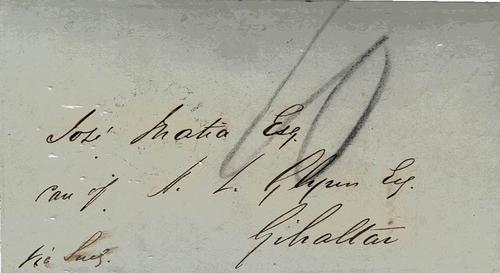 10
José Matia Esq.
care of N. L. Glynn Esq.
Gibraltar
via Suez.